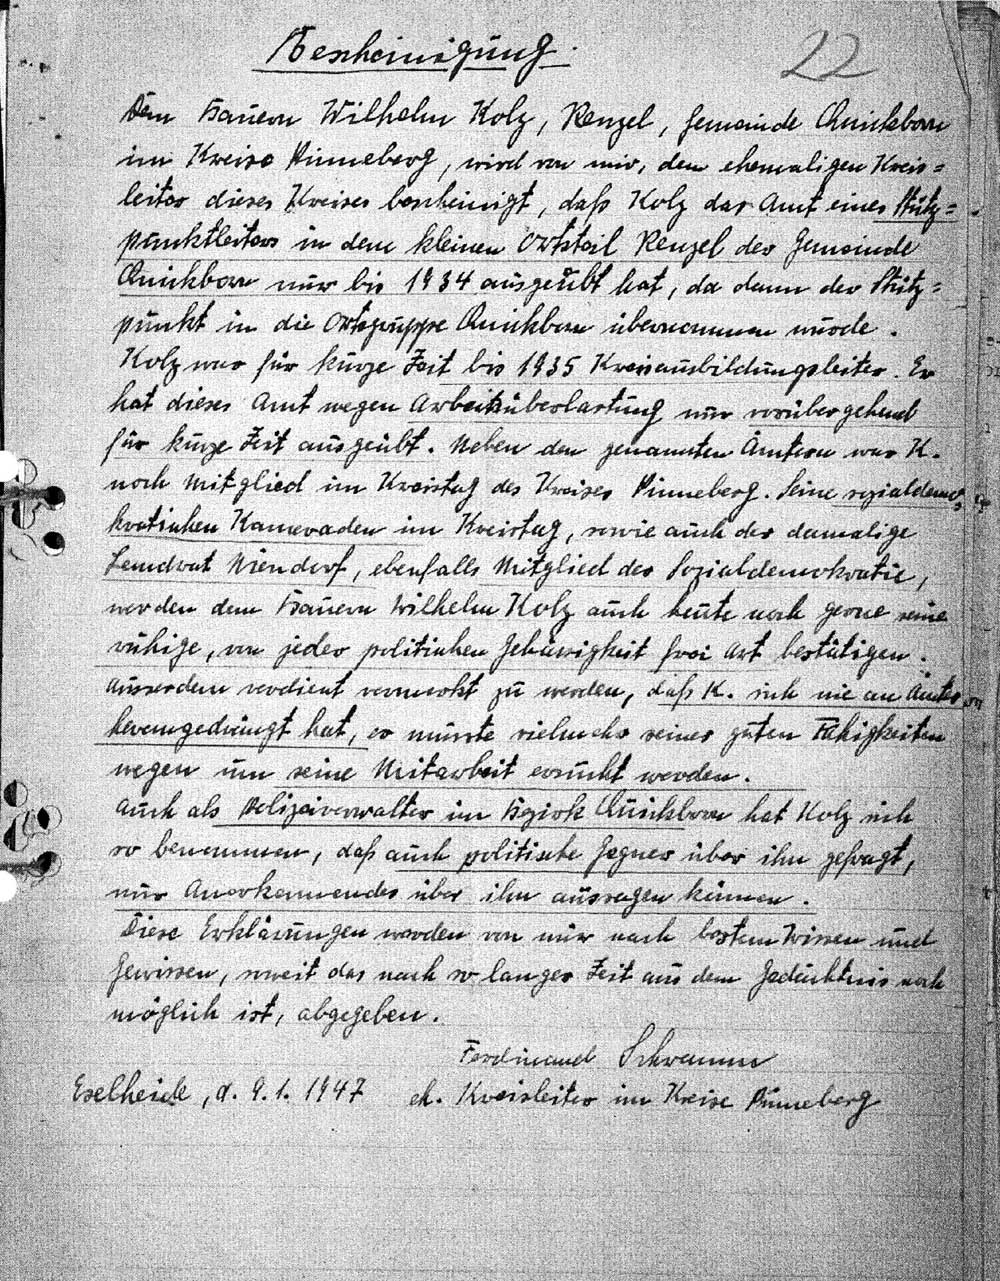 Bescheinigung.
22
Dem Bauern Wilhelm Kolz, Renzel, Gemeinde Quickborn
im Kreise Pinneberg, wird von mir, dem ehemaligen Kreis=
leiter dieses Kreises bescheinigt, daß Kolz das Amt eines Stütz=
punktleiters in dem kleinen Ortsteil Renzel der Gemeinde
Quickborn nur bis 1934 ausgeübt hat, da dann der Stütz=
punkt in die Ortsgruppe Quickborn übernommen wurde.
Kolz war für kurze Zeit bis 1935 Kreisausbildungsleiter. Er
hat dieses Amt wegen Arbeitsüberlastung nur vorübergehend
für kurze Zeit ausgeübt. Neben den genannten Ämtern war K.
noch Mitglied im Kreistag des Kreises Pinneberg. Seine sozialdemo=
kratischen Kameraden im Kreistag, sowie auch der damalige
Landrat Niendorf, ebenfalls Mitglied der Sozialdemokratie,
werden dem Bauern Wilhelm Kolz auch heute noch gerne seine
ruhige, von jeder politischen Gehässigkeit frei Art bestätigen.
Ausserdem verdient vermerkt zu werden, daß K. sich nie an Ämter
herangedrängt hat, er musste vielmehr seiner guten Fähigkeiten
wegen um seine Mitarbeit ersucht werden.
Auch als Polizeiverwalter im Bezirk Quickborn hat Kolz sich
so benommen, daß auch politische Gegner über ihn gefragt,
nur Anerkennendes über ihn aussagen können.
Diese Erklärungen werden von mir nach bestem Wissen und
Gewissen, soweit das nach so langer Zeit aus dem Gedächtnis noch
möglich ist, abgegeben.
Ferdinand Schramm
Eselheide, d. 9.1.1947 eh. Kreisleiter im Kreise Pinneberg